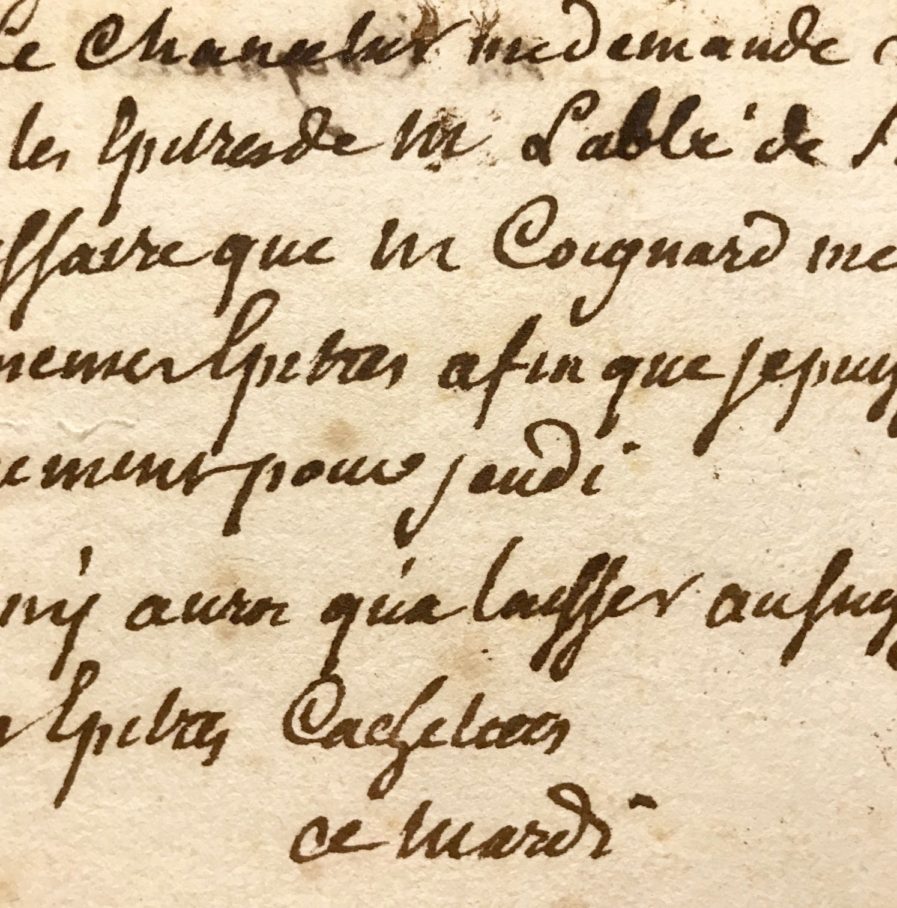 Le Chancelier me demande
les Epitres de M L'abbé de
affaire que M Coignard me
mesmes Epitres afin que je puis
ement pour jeudi
n'y aura qu'a laisser au suis
Epitres Cachetees
ce mardi